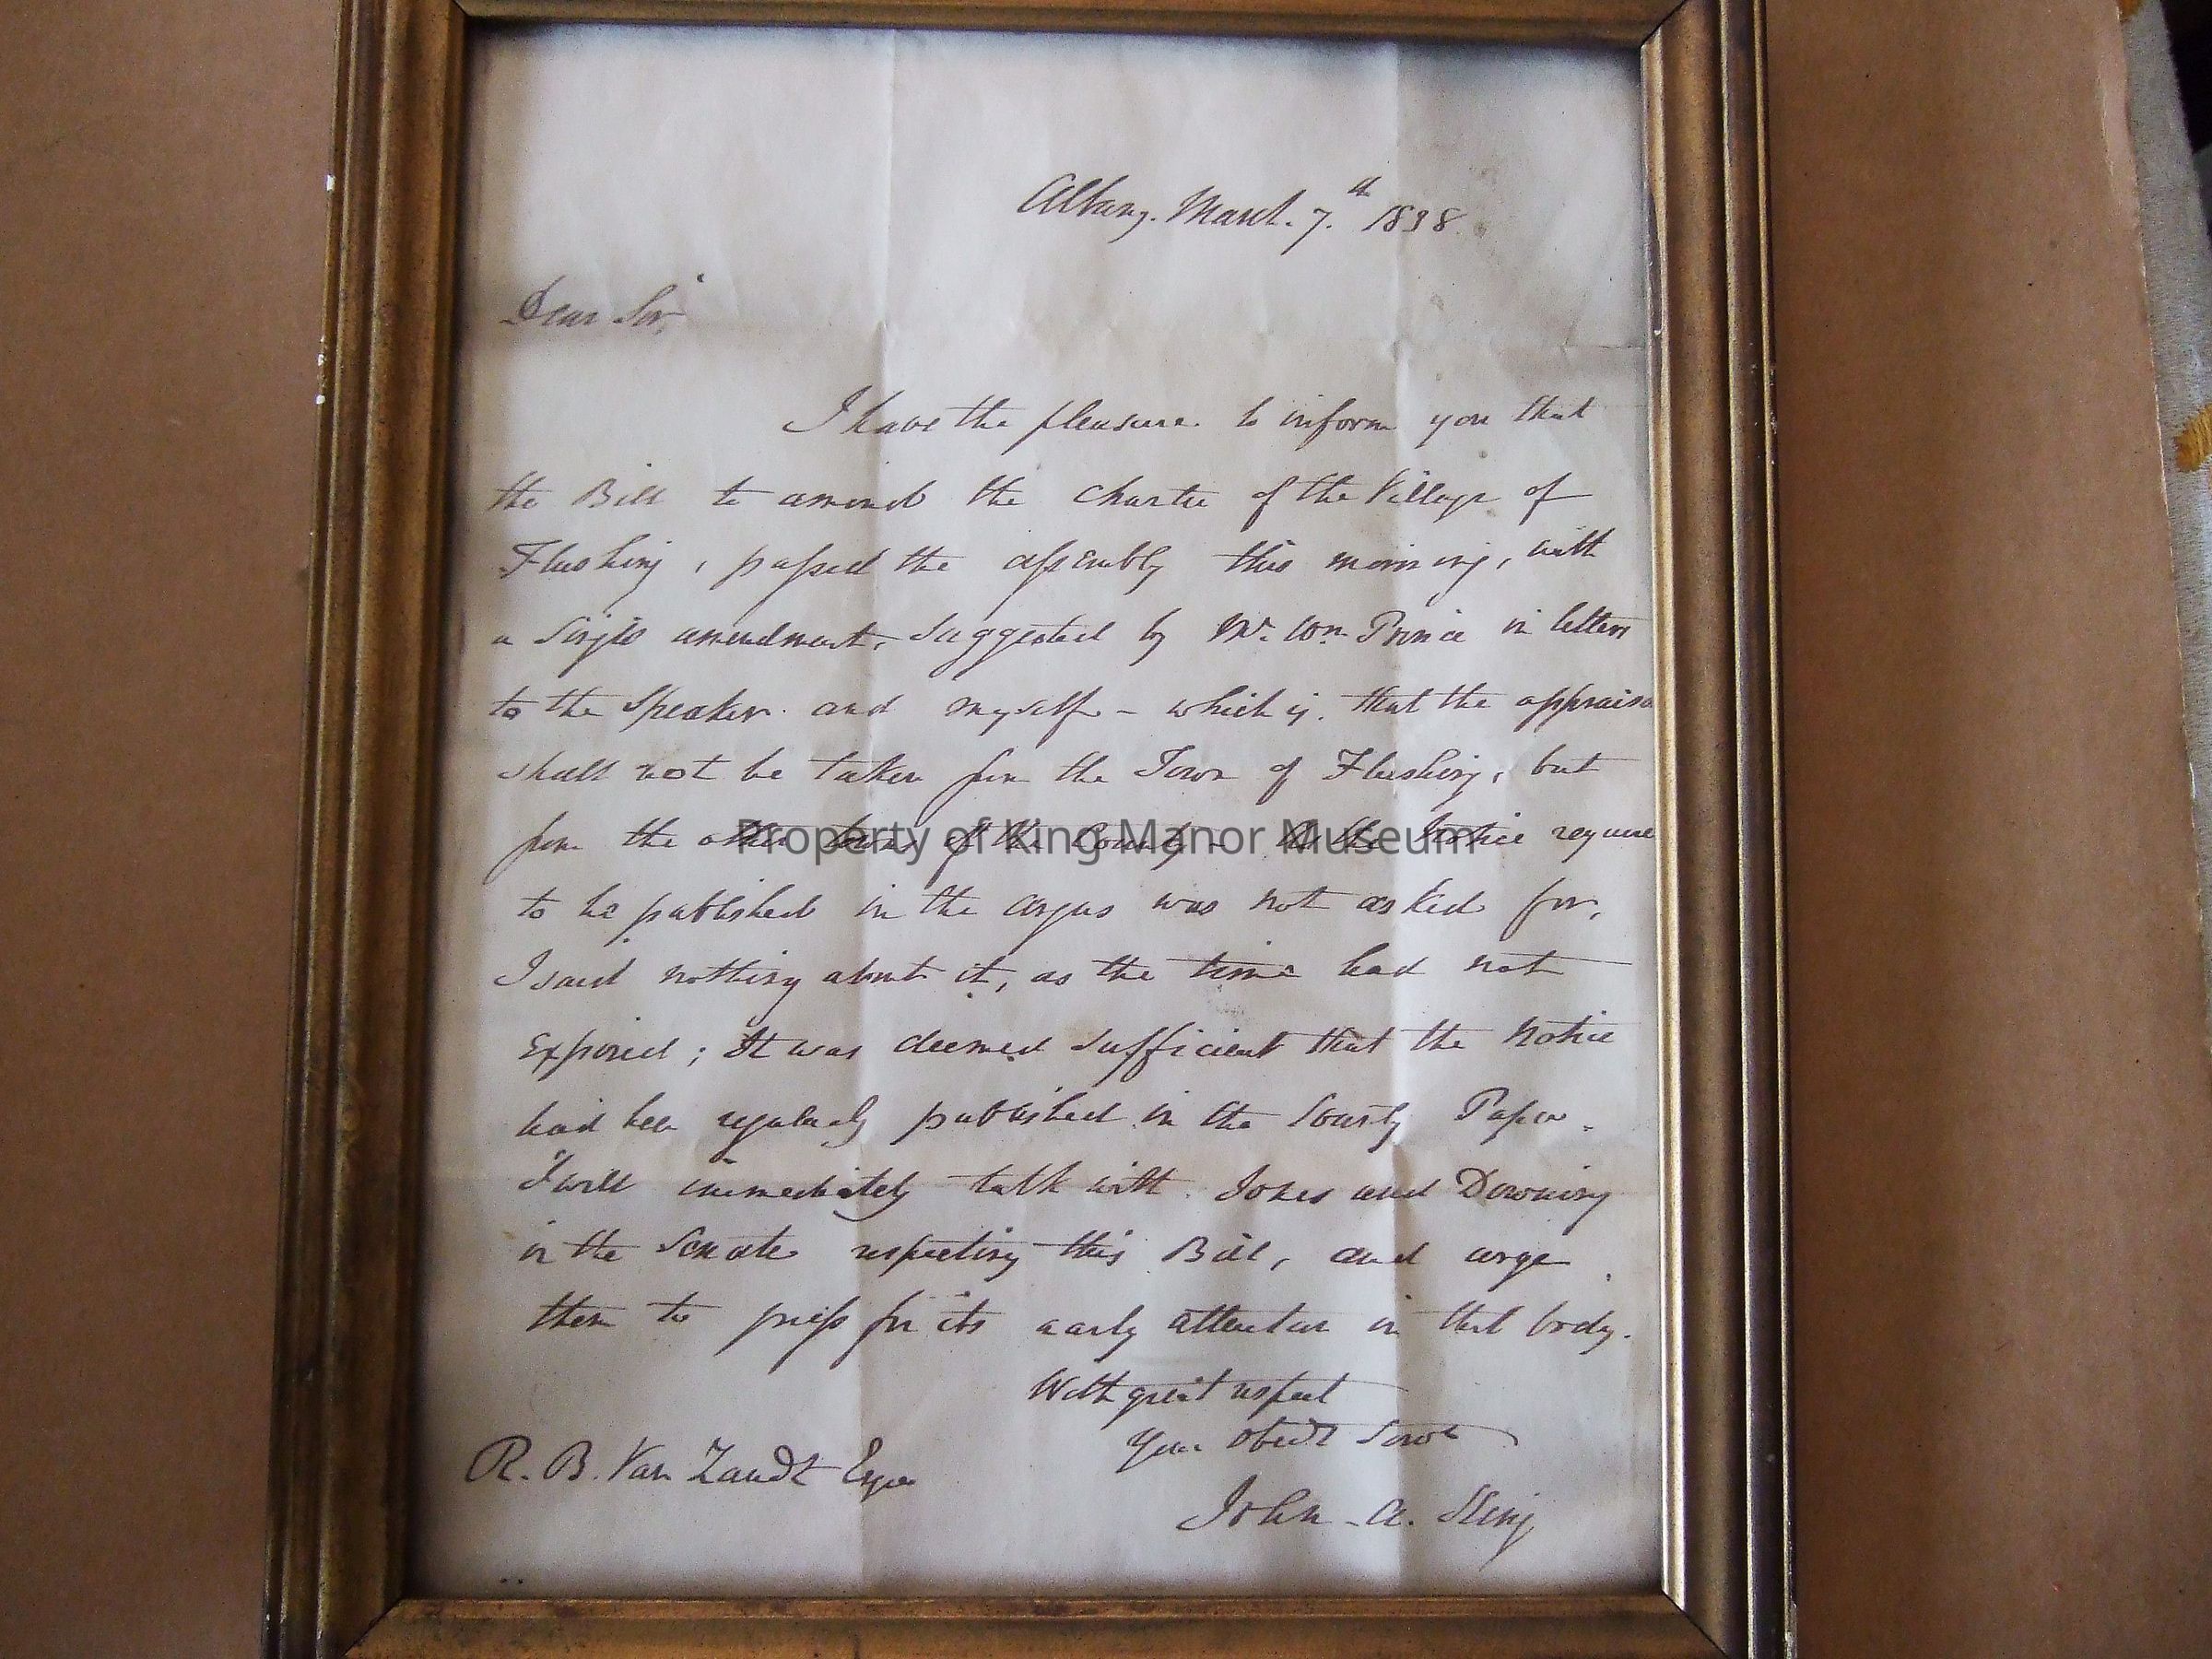 Albany. March. 7.th 1838.
Dear Sir,
I have the pleasure to inform you that
the Bill to amend the Charter of the Village of
Flushing, passed the assembly this morning, with
a single amendment, suggested by Mr. Wm. Prince in letters
to the Speaker and myself - which is. that the appraise
shall not be taken from the Town of Flushing, but
from the other towns of the County - As the Notice require
to be published in the Argus was not asked for,
I said nothing about it, as the time had not
Expired; It was deemed sufficient that the Notice
had been regularly published in the County Paper.
I will immediately talk with Jones and Downing
in the Senate respecting this Bill, and urge
them to press for its early attention in that body.
With great respect
Your Obedt Servt
R. B. Van Zandt Esqre
John A. King
Property of King Manor Museum